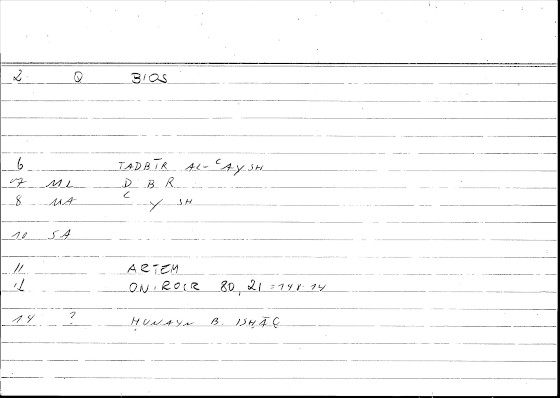 2 Q BIOS
6 TADBĪR AL-ʿAYSH
7 ML D B R
8 MA ʿ Y SH
10 SA
11 ARTEM
12 ONIROCR 80, 21 = 148.14
14 ? ḤUNAYN B. ISḤĀQ